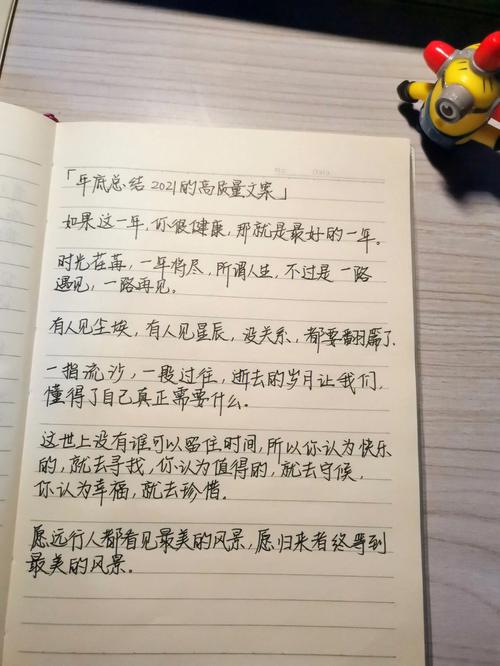 「年底总结2021的高质量文案」
如果这一年，你很健康，那就是最好的一年。
时光荏苒，一年将尽，所谓人生，不过是一路
遇见，一路再见。
有人见尘埃，有人见星辰，没关系，都要翻篇了.
一指流沙，一段过往，逝去的岁月让我们，
懂得了自己真正需要什么.
这世上没有谁可以留住时间，所以你认为快乐
的，就去寻找，你认为值得的，就去守候，
你认为幸福，就去珍惜.
愿远行人都看见最美的风景，愿归来者终等到
最美的风景。